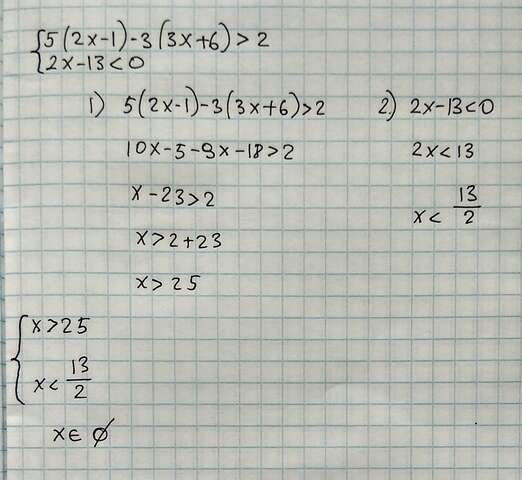 5(2x-1)-3(3x+6)>2
2x-13<0
1) 5(2x-1)-3(3x+6)>2
10x-5-9x-18>2
x-23>2
x>2+23
x>25
2) 2x-13<0
2x<13
x< 13/2
x>25
x< 13/2
x∈ ∅